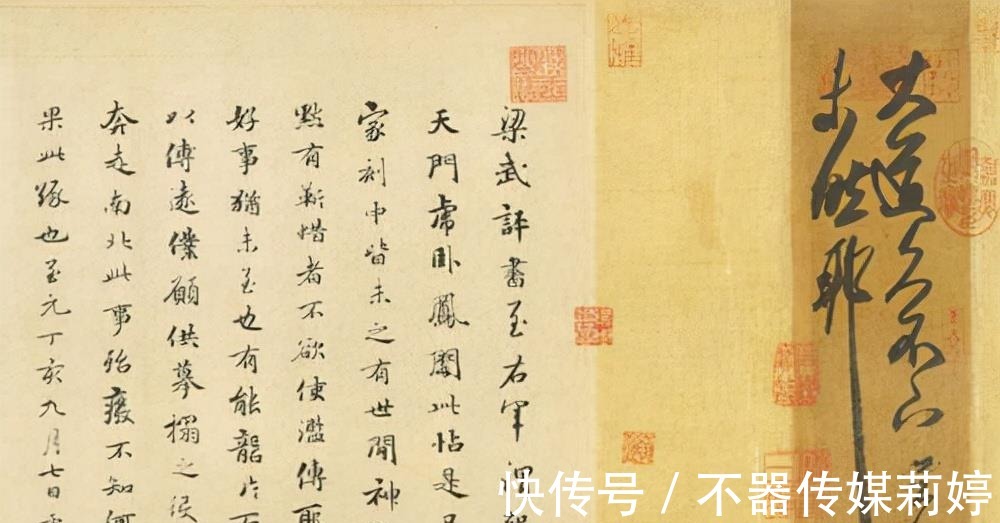 大道久不下
未然耶
梁武評書至右軍謂
天門虎卧鳳閣此帖是
家刻中皆未之有世間神
點有靳惜者不欲使濫傳耶
好事猶未至也有能龍片石
以傳遠僕願供摹搨之役
奔走南北此事殆廢不知何
果此緣也至元丁亥九月七日
快传号 / 不器传媒莉婷